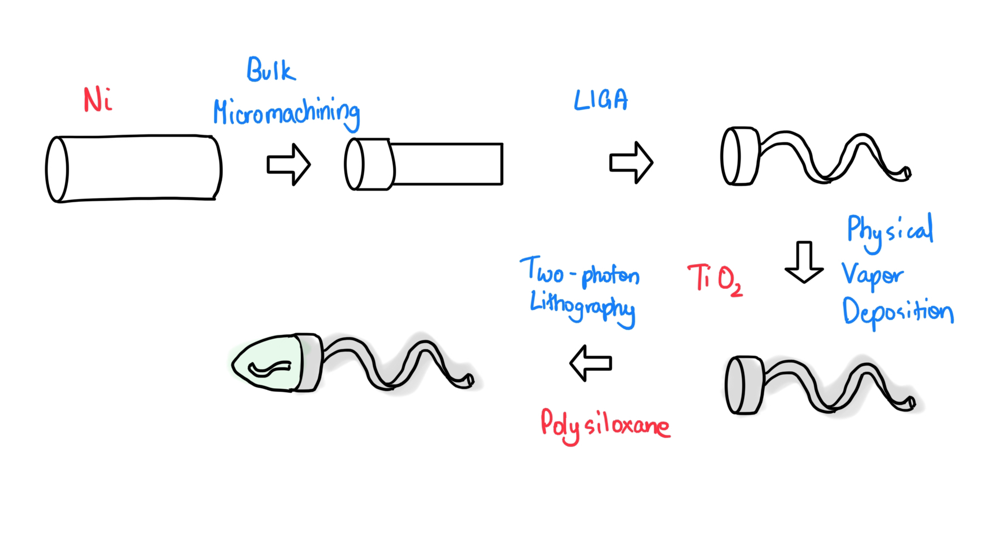 Ni
Bulk
Micromachining
LIGA
Physical
Vapor
Deposition
TiO₂
Two-photon
Lithography
Polysiloxane